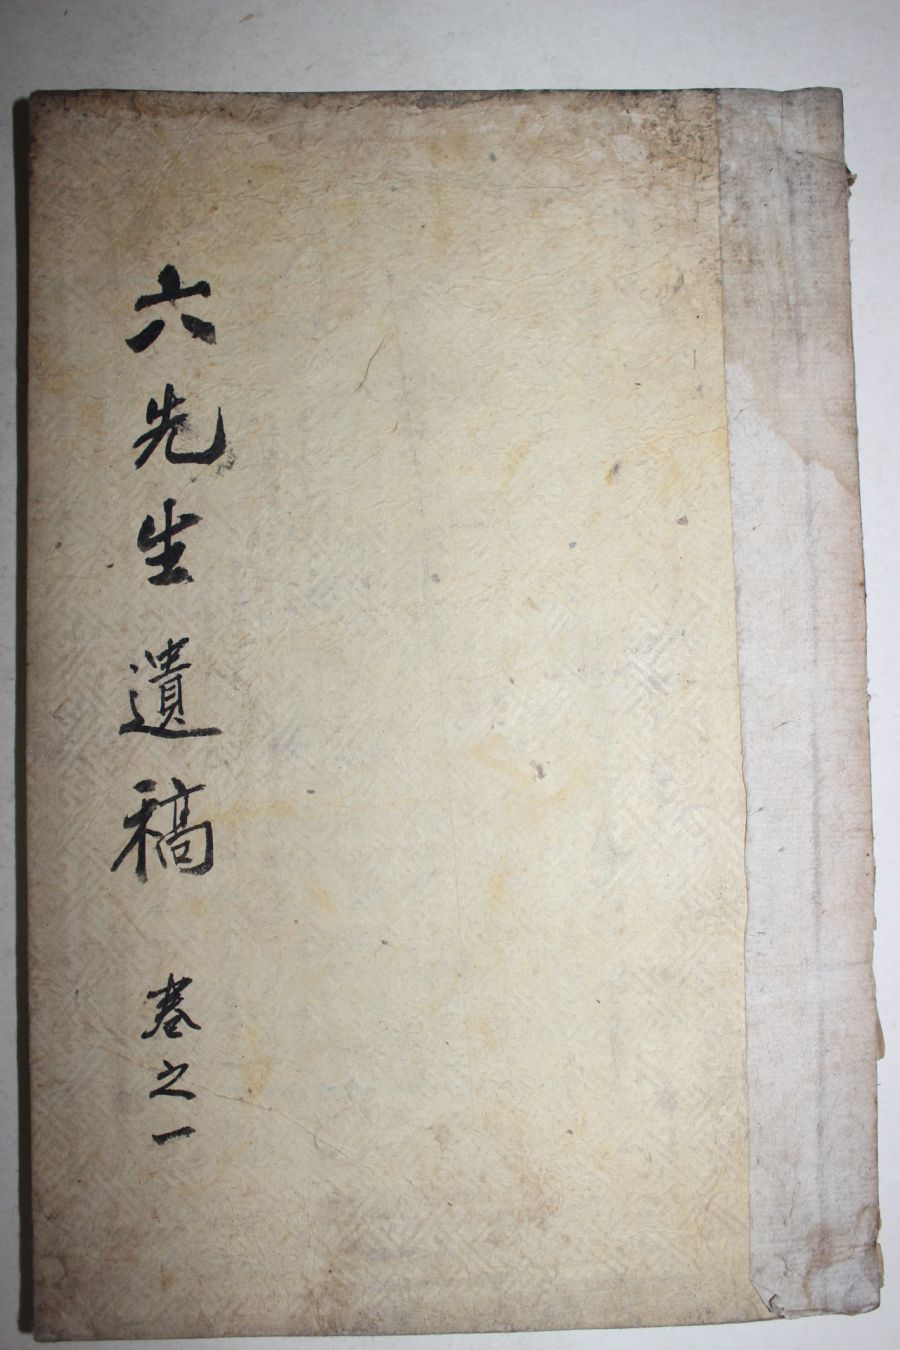 六先生遺稿 卷之一